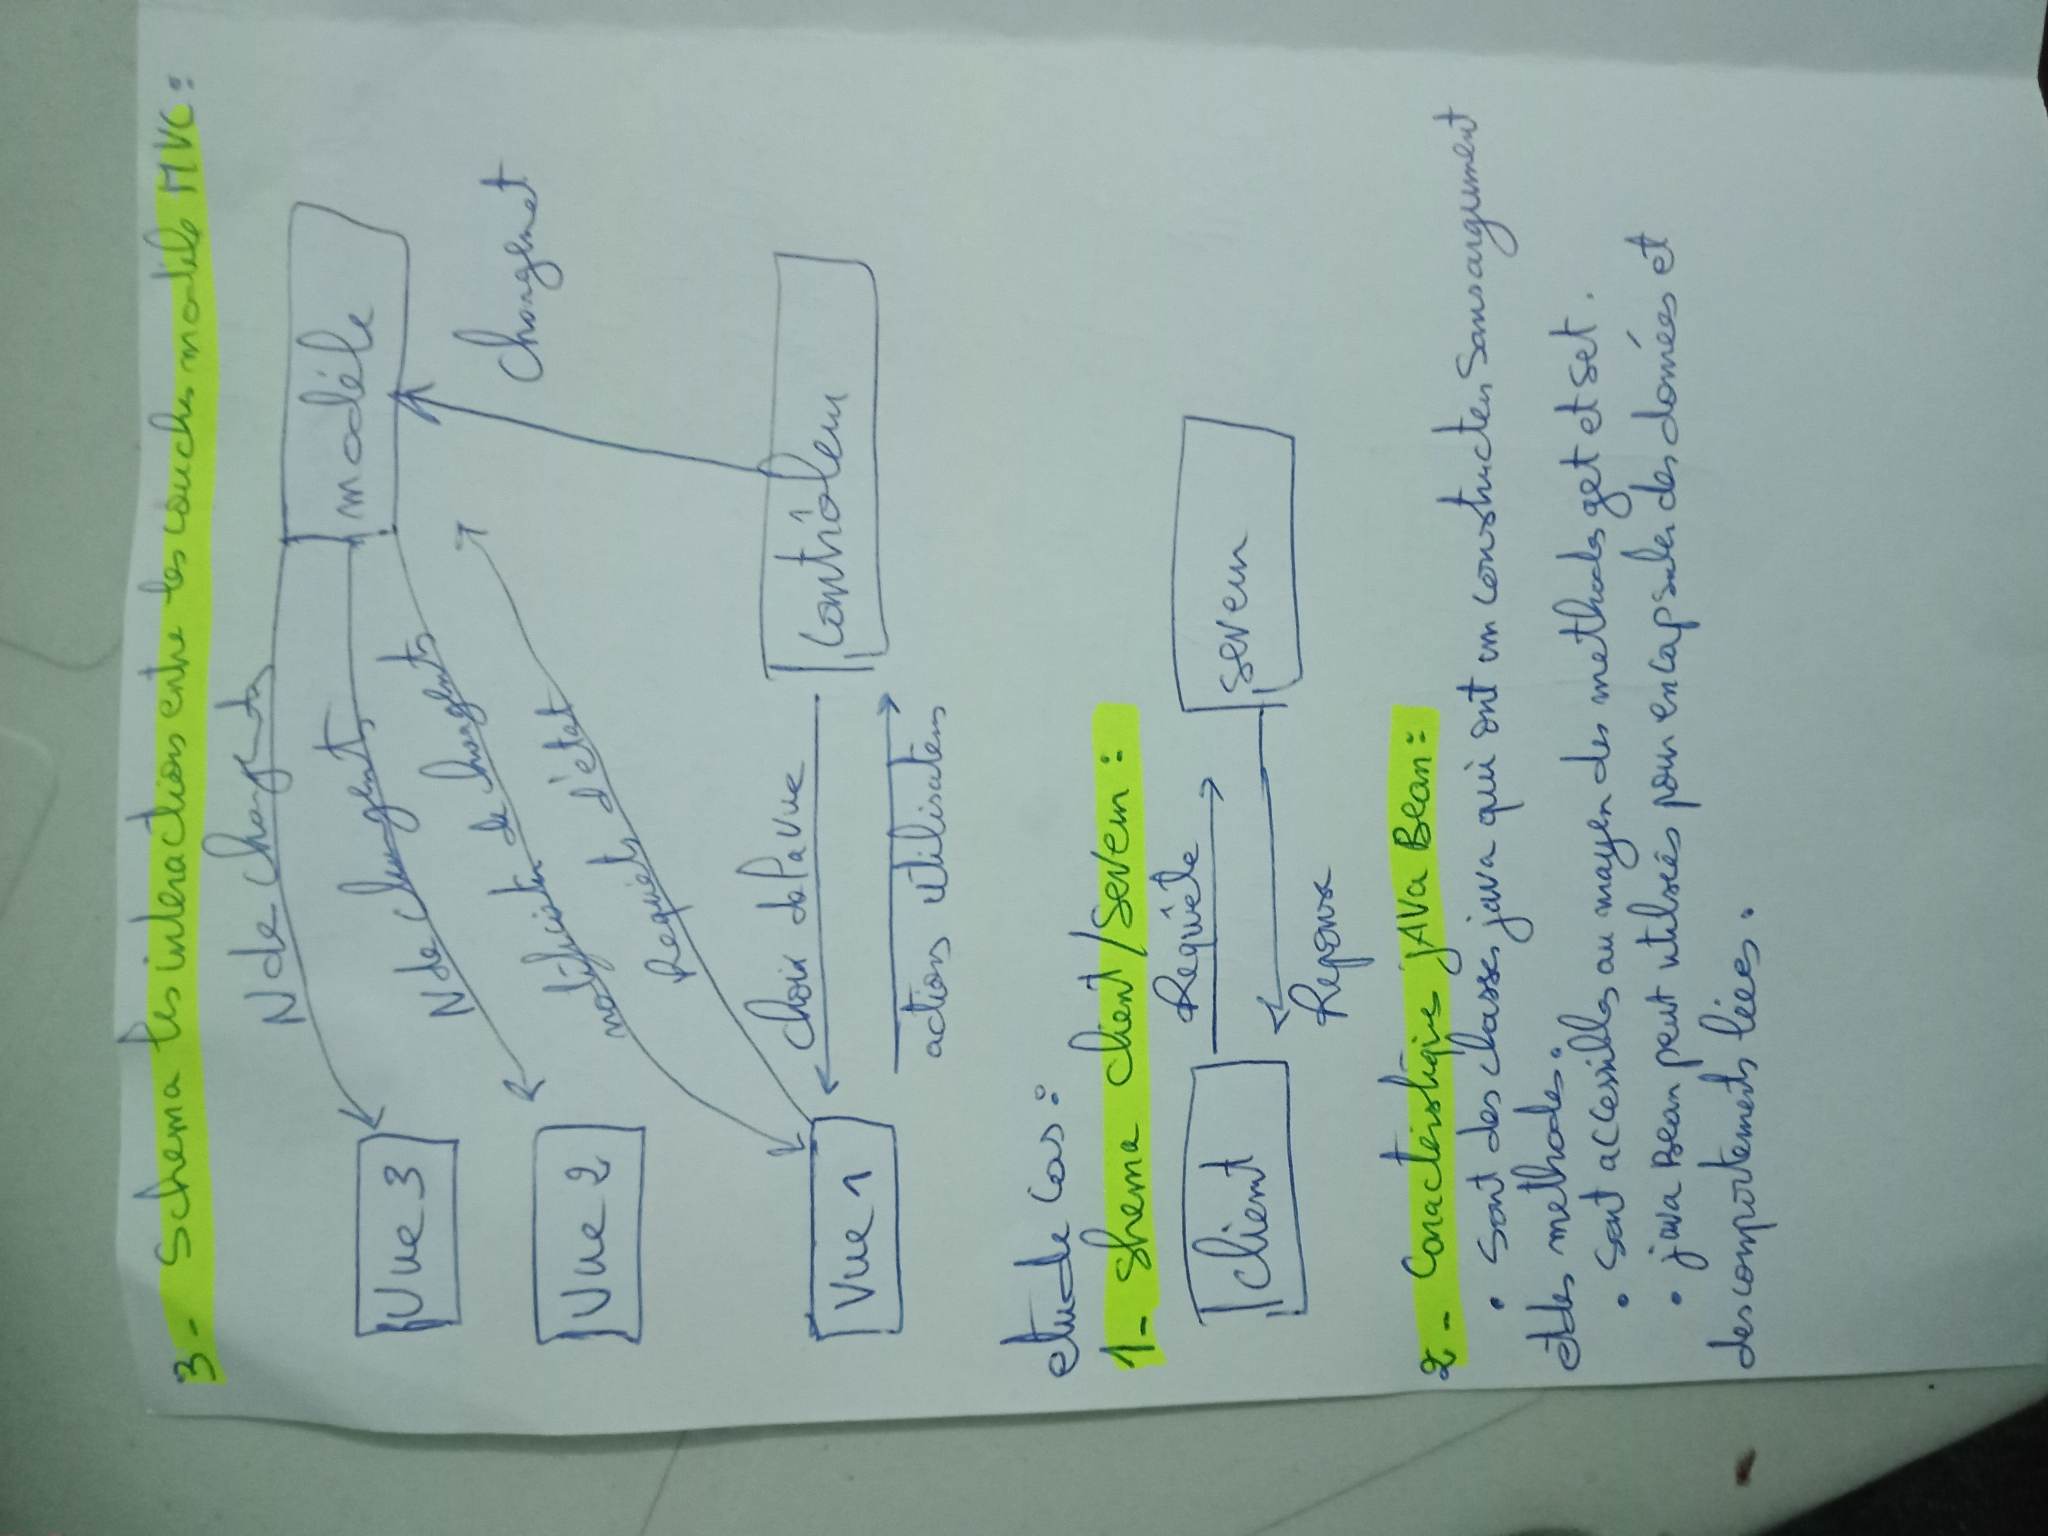 3- Schema les interactions entre les couches modèle MVC :
N de changents
modèle
Vue 3
N de changents
notification de changents
Changemet
Vue 2
Requêts d'état
choix de la vue
Contrôleur
Vue 1
actions utilisateurs
etude cas :
1- shema client/serveur :
Requête
client
serveur
Reponse
2- Caractéristiques jAVa Bean :
• sont des classes java qui ont un constructeur sans argument
et des methodes.
• sont accessibles au mayen des methods get et set.
• java Bean peut utilisées pour encapsuler des données et
des comportements liées.